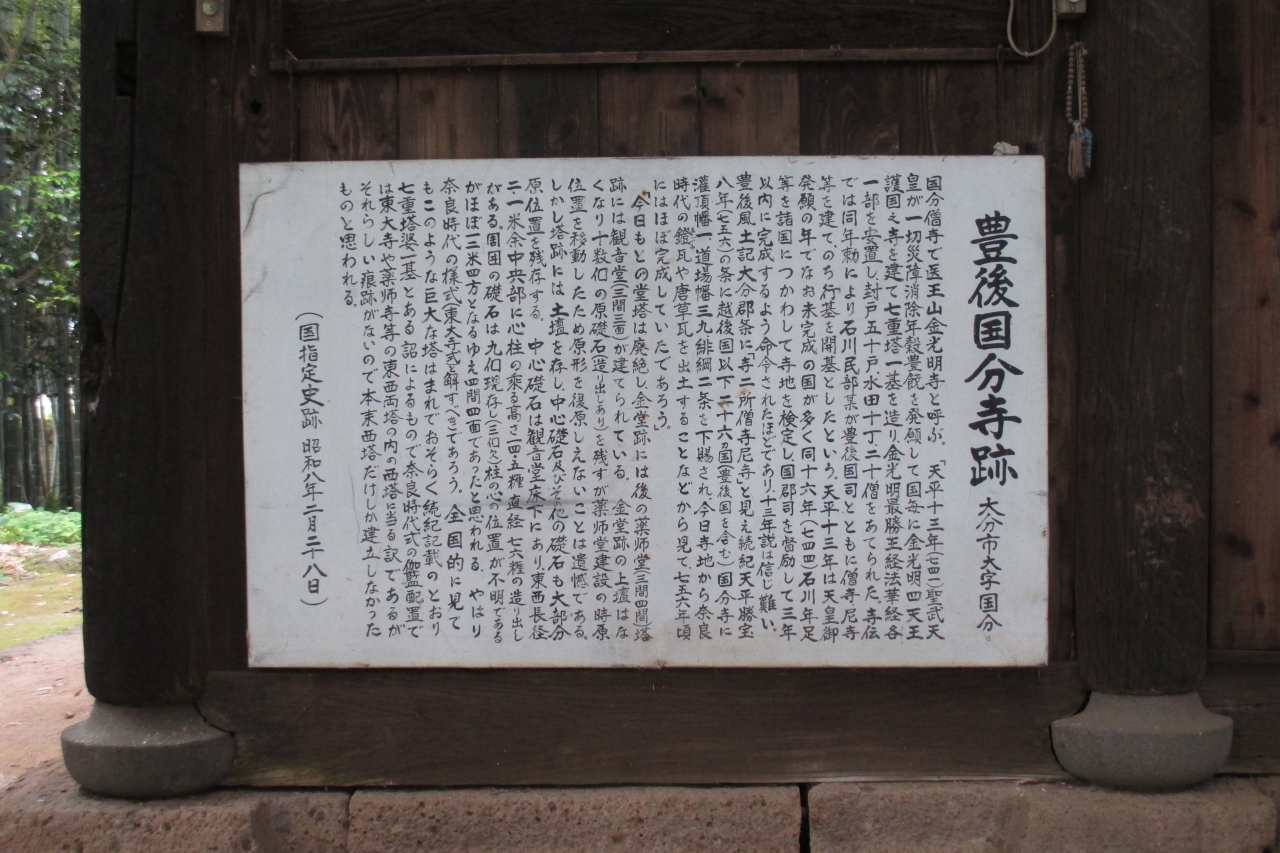 豊後国分寺跡 大分市大字国分
国分僧寺で医王山金光明寺と呼ぶ。「天平十三年(七四一)聖武天
皇が一切災障消除年穀豊饒を発願して国毎に金光明四天王
護国之寺を建て七重塔一基を造り金光明最勝王経法華経各
一部を安置し封戸五十戸水田十丁、二十僧をあてられた。寺伝
では同年勅により石川民部某が豊後国司とともに僧寺尼寺
等を建てのち行基を開基としたという。天平十三年は天皇御
発願の年でなお未完成の国が多く同十六年(七四四)石川年足
等を諸国につかわして寺地を検定し国郡司を督励して三年
以内に完成するよう命令されたほどであり、十三年説は信じ難い。
豊後風土記大分郡条に「寺二所僧寺尼寺」と見え続紀天平勝宝
八年(七五六)の条に越後国以下二十六カ国(豊後国を含む)国分寺に
灌頂幡一、道場幡三九緋綱二条を下賜され、今日寺地から奈良
時代の鐙瓦や唐草瓦を出土することなどから見て、七五六年頃
にはほぼ完成していたであろう」
「今日もとの堂塔は廃絶し、金堂跡には後の薬師堂(三間四間)塔
跡には観音堂(三間三面)が建てられている。金堂跡の上壇はな
くなり十数個の原礎石(造り出しあり)を残すが薬師堂建設の時原
位置を移動したため原形を復原しえないことは遺憾である。
しかし塔跡には土壇を存し、中心礎石及びその他の礎石も大部分
原位置を残存する。中心礎石は観音堂床下にあり、東西長径
二・一米余中央部に心柱の乗る高さ一四・五糎直経七六糎の造り出し
がある。周囲の礎石は九個現存し(三個欠)柱の心の位置が不明である
がほぼ一三米四方となるゆえ四間四面であったと思われる。やはり
奈良時代の様式(東大寺式)と解すべきであろう。全国的に見て
もこのような巨大な塔はまれでおそらく続紀記載のとおり
七重塔婆一基とある詔によるもので奈良時代式の伽藍配置で
は東大寺や薬師寺等の東西両塔の内の西塔に当る訳であるが
それらしい痕跡がないので本来西塔だけしか建立しなかった
ものと思われる。
(国指定史跡 昭和八年二月二十八日)